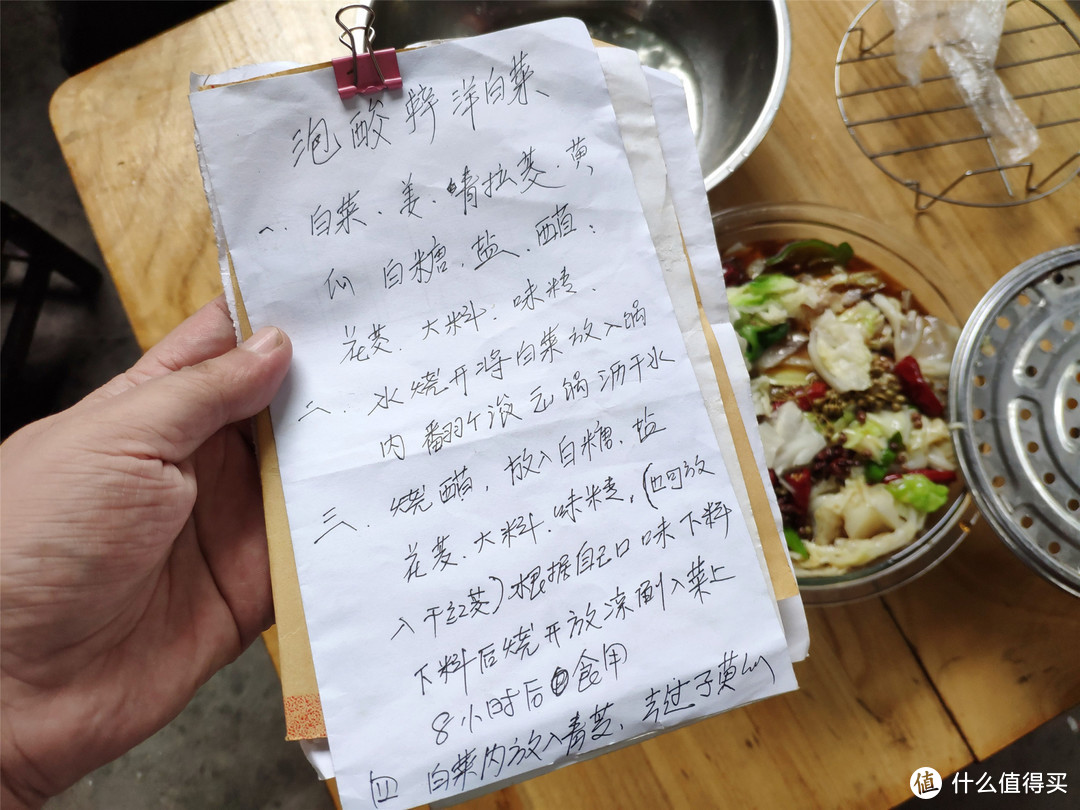 泡酸辣洋白菜
一. 白菜、姜、青拉茭、黄
瓜 白糖、盐、醋、
花茭、大料、味精.
二. 水烧开将白菜放入锅
内翻个滚 锅沥干水
三. 烧醋, 放入白糖、盐
花茭、大料、味精, (也可放
入干红茭) 根据自己口味下料
下料后烧开放凉倒入菜上
8小时后 食用
四 白菜内放入青茭、去过子黄瓜
值 什么值得买